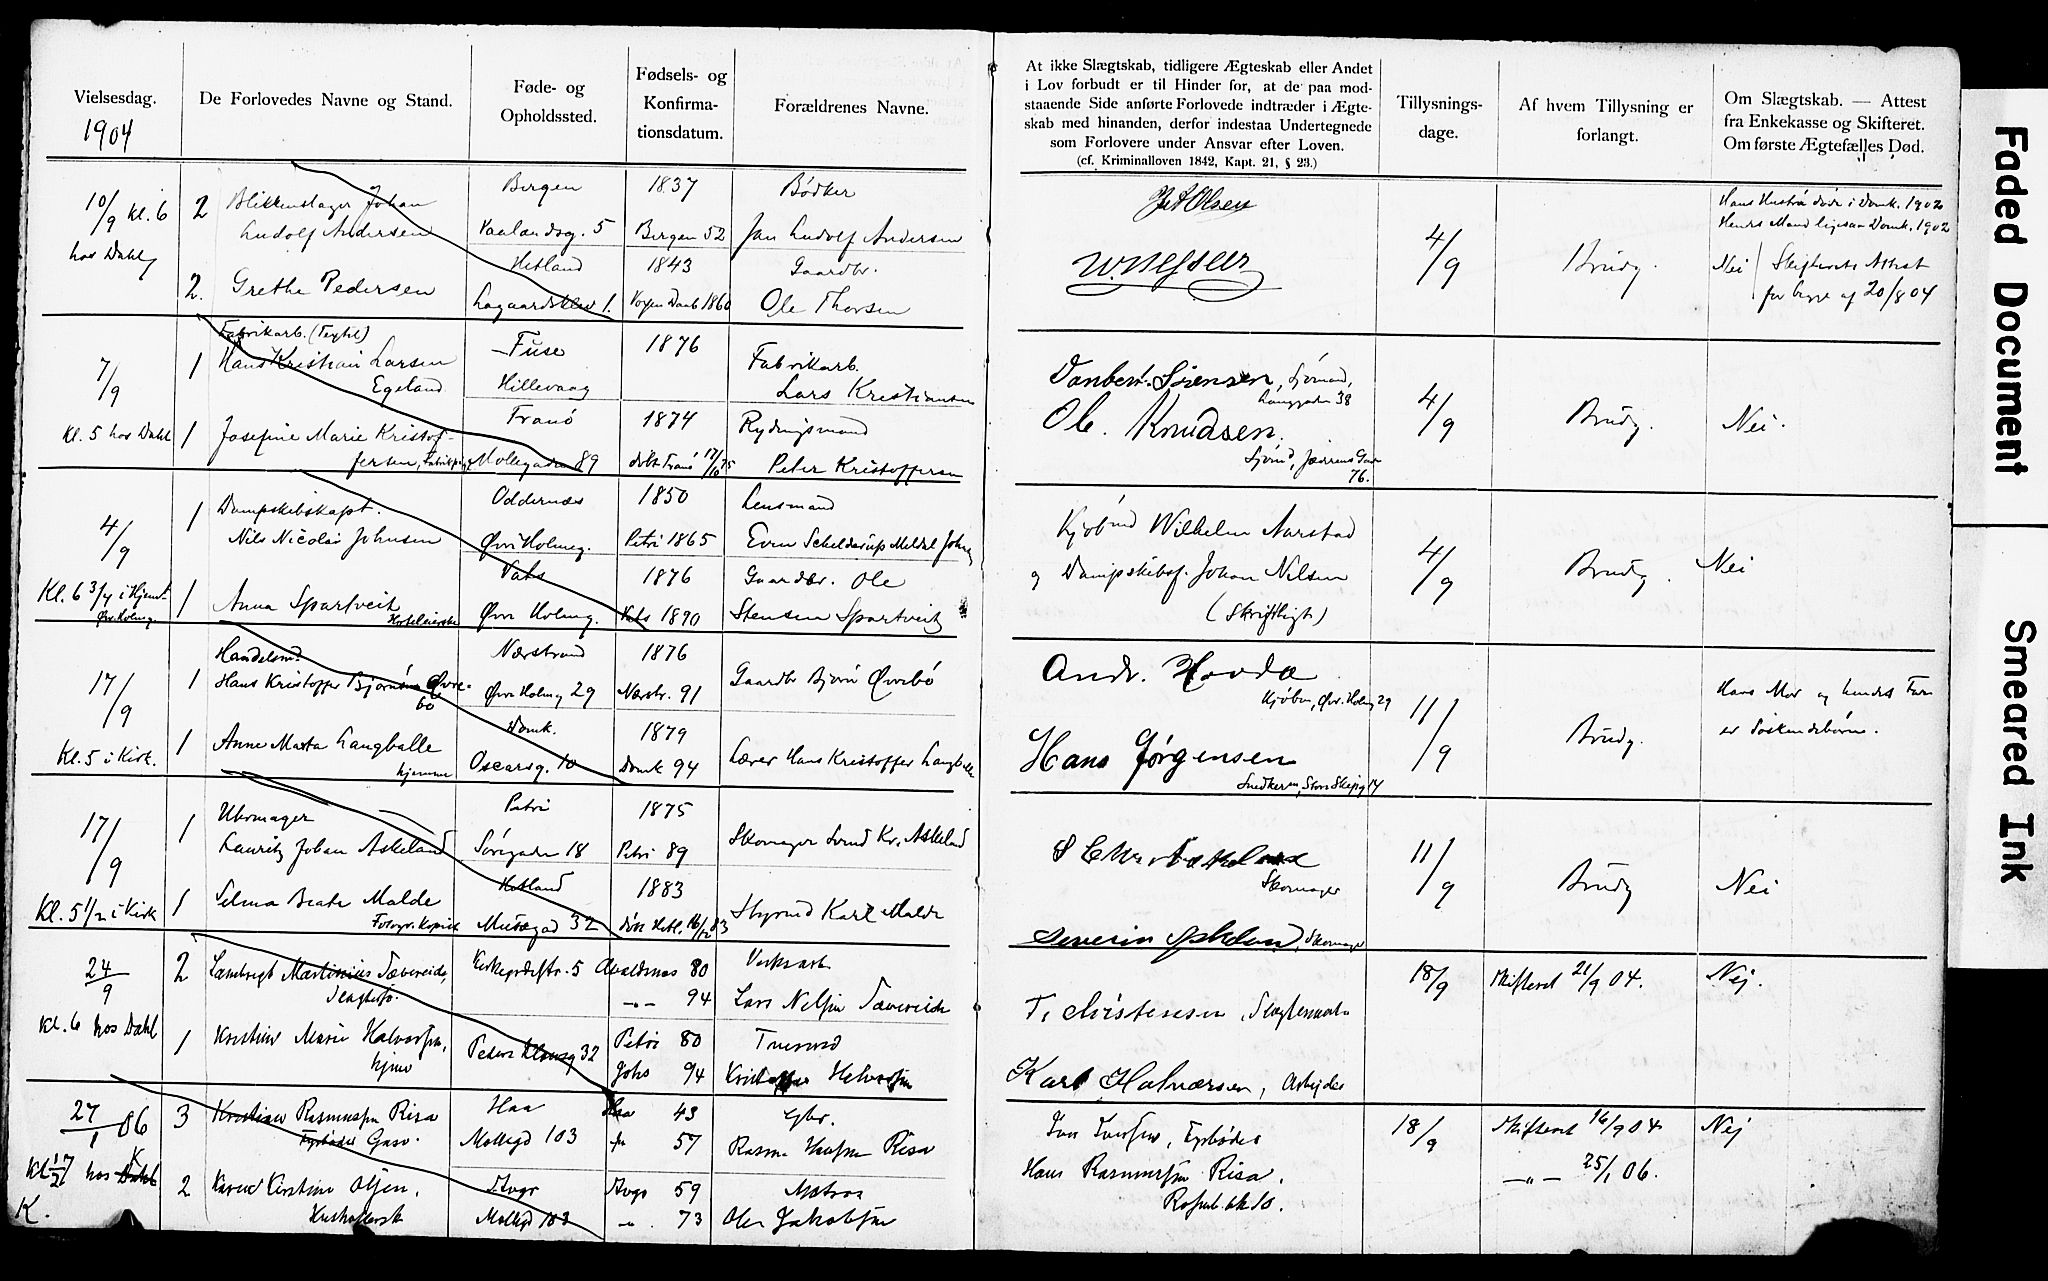 Vielsesdag.
1904
De Forlovedes Navne og Stand.
Føde- og
Opholdssted.
Fødsels- og
Konfirma-
tionsdatum.
Forældrenes Navne.
At ikke Slægtskab, tidligere Ægteskab eller Andet
i Lov forbudt er til Hinder for, at de paa mod-
staaende Side anførte Forlovede indtræder i Ægte-
skab med hinanden, derfor indestaa Undertegnede
som Forlovere under Ansvar efter Loven.
(cf. Kriminalloven 1842, Kapt. 21, § 23.)
Tillysnings-
dage.
Af hvem Tillysning er
forlangt.
Om Slægtskab. — Attest
fra Enkekasse og Skifteret.
Om første Ægtefælles Død.
10/9 kl. 6
hos Dahl
2
Blikkenslager Johan
Ludolf Andersen
Bergen
Vaalandsg. 5
1837
Bergen 52
Bødker
Jan Ludolf Andersen
2.
Grethe Pedersen
Hetland
Lagaardsklev 1.
1843
1860
Gaardbr.
Ole Thorsen
Olsen
4/9
Brudg.
Hans Hustru døde i Domk. 1902
Hendes Mand ligesaa Domk. 1902
Nei
Skifterets Attest
for begge af 20/8 04
7/9
Kl. 5 hos Dahl
1
Fabrikarb. (Tegl)
Hans Kristian Larsen
Egeland
Fuse
Hillevaag
1876
Fabrikarb.
Lars Kristiansen
1
Josefine Marie Kristof-
fersen,
Tranø
Møllegaden 89
1874
døbt Tranø 17/10 75
Peter Kristoffersen
Sørensen, Sjømand,
38
Ole Knudsen.
Sjømd,
76.
4/9
Brudg.
Nei.
4/9
Kl. 6 3/4 i Hjemt
Øvr. Holmg.
1
Dampskibskapt.
Nils Nicolai Johnsen
Oddernæs
Øvr. Holmg.
1850
Petri 1865
Lensmand
Even Schelderup Meldal
1
Anna Spartveit
Vats
Øvre Holmg.
1876
Vats 1890
Gaardbr. Ole
Stensen Spartveit
Kjøbmd Wilhelm Aarstad
og Dampskibsf. Johan Nilsen
(Skriftligt)
4/9
Brudg.
Nei
17/9
Kl. 5 i Kirk.
1
Handelsmd.
Hans Kristoffer Bjørnsen Øvre-
bø
Nærstrand
Øvre Holmeg 29
1876
Nærstr. 91
Gaardbr Bjørn Øvrebø
1
Anne Marta Langballe
hjemme
Domk.
Oscarsg. 10
1879
Domk 94
Lærer Hans Kristoffer Langballe
Andr. Hovda
Kjøbm, Øvr. Holmg 29
Hans Jørgensen
14
11/9
Brudg.
Hans Mor og hendes Far
er Søskendebørn.
17/9
Kl. 5 1/2 i Kirk
1
Uhrmager
Lauritz Johan Askeland
Petri
Sørigaden 18
1875
Petri 89
Skomager Svend Kr. Askeland
1
Selma Beate Malde
Hetland
Musægad 32
1883
døbt Hetl. 16/12 83
Styrmd Karl Malde
Skomager
Severin Askeland, Skomager
11/9
Brudg
Nei
24/9
Kl. 6 hos Dahl
2
Lambregt Martinius Tævereide,
Kirkegårdstr. 5
Avaldsnes 80
-"- 94
Lars Nilsen Tævereide
1
Kristine Marie Halvorsen,
hjme
Peders Klausg 32
Petri 80
Johs 94
Kristoffer Halvorsen
T. Christensen,
Karl Halvorsen, Arbeider
18/9
Skifteret 21/9 04.
Nej.
27/1 06
Kl 1/2 7 hos Dahl
K
K.
3
Kristian Rasmussen Risa
Fyrbøder Gasv.
Haa
Mollegd 103
Haa 43
57
Rasmus Hansen Risa
2
Karen Kirstine Olsen,
Hushalersk
Mollegd 103
59
-"- 73
Ole Jakobsen
Fyrbøder
Hans Rasmussen Risa,
18/9
Skifteret 16/9 04
-"- 25/1 06.
Nej
Faded Document
Smeared Ink